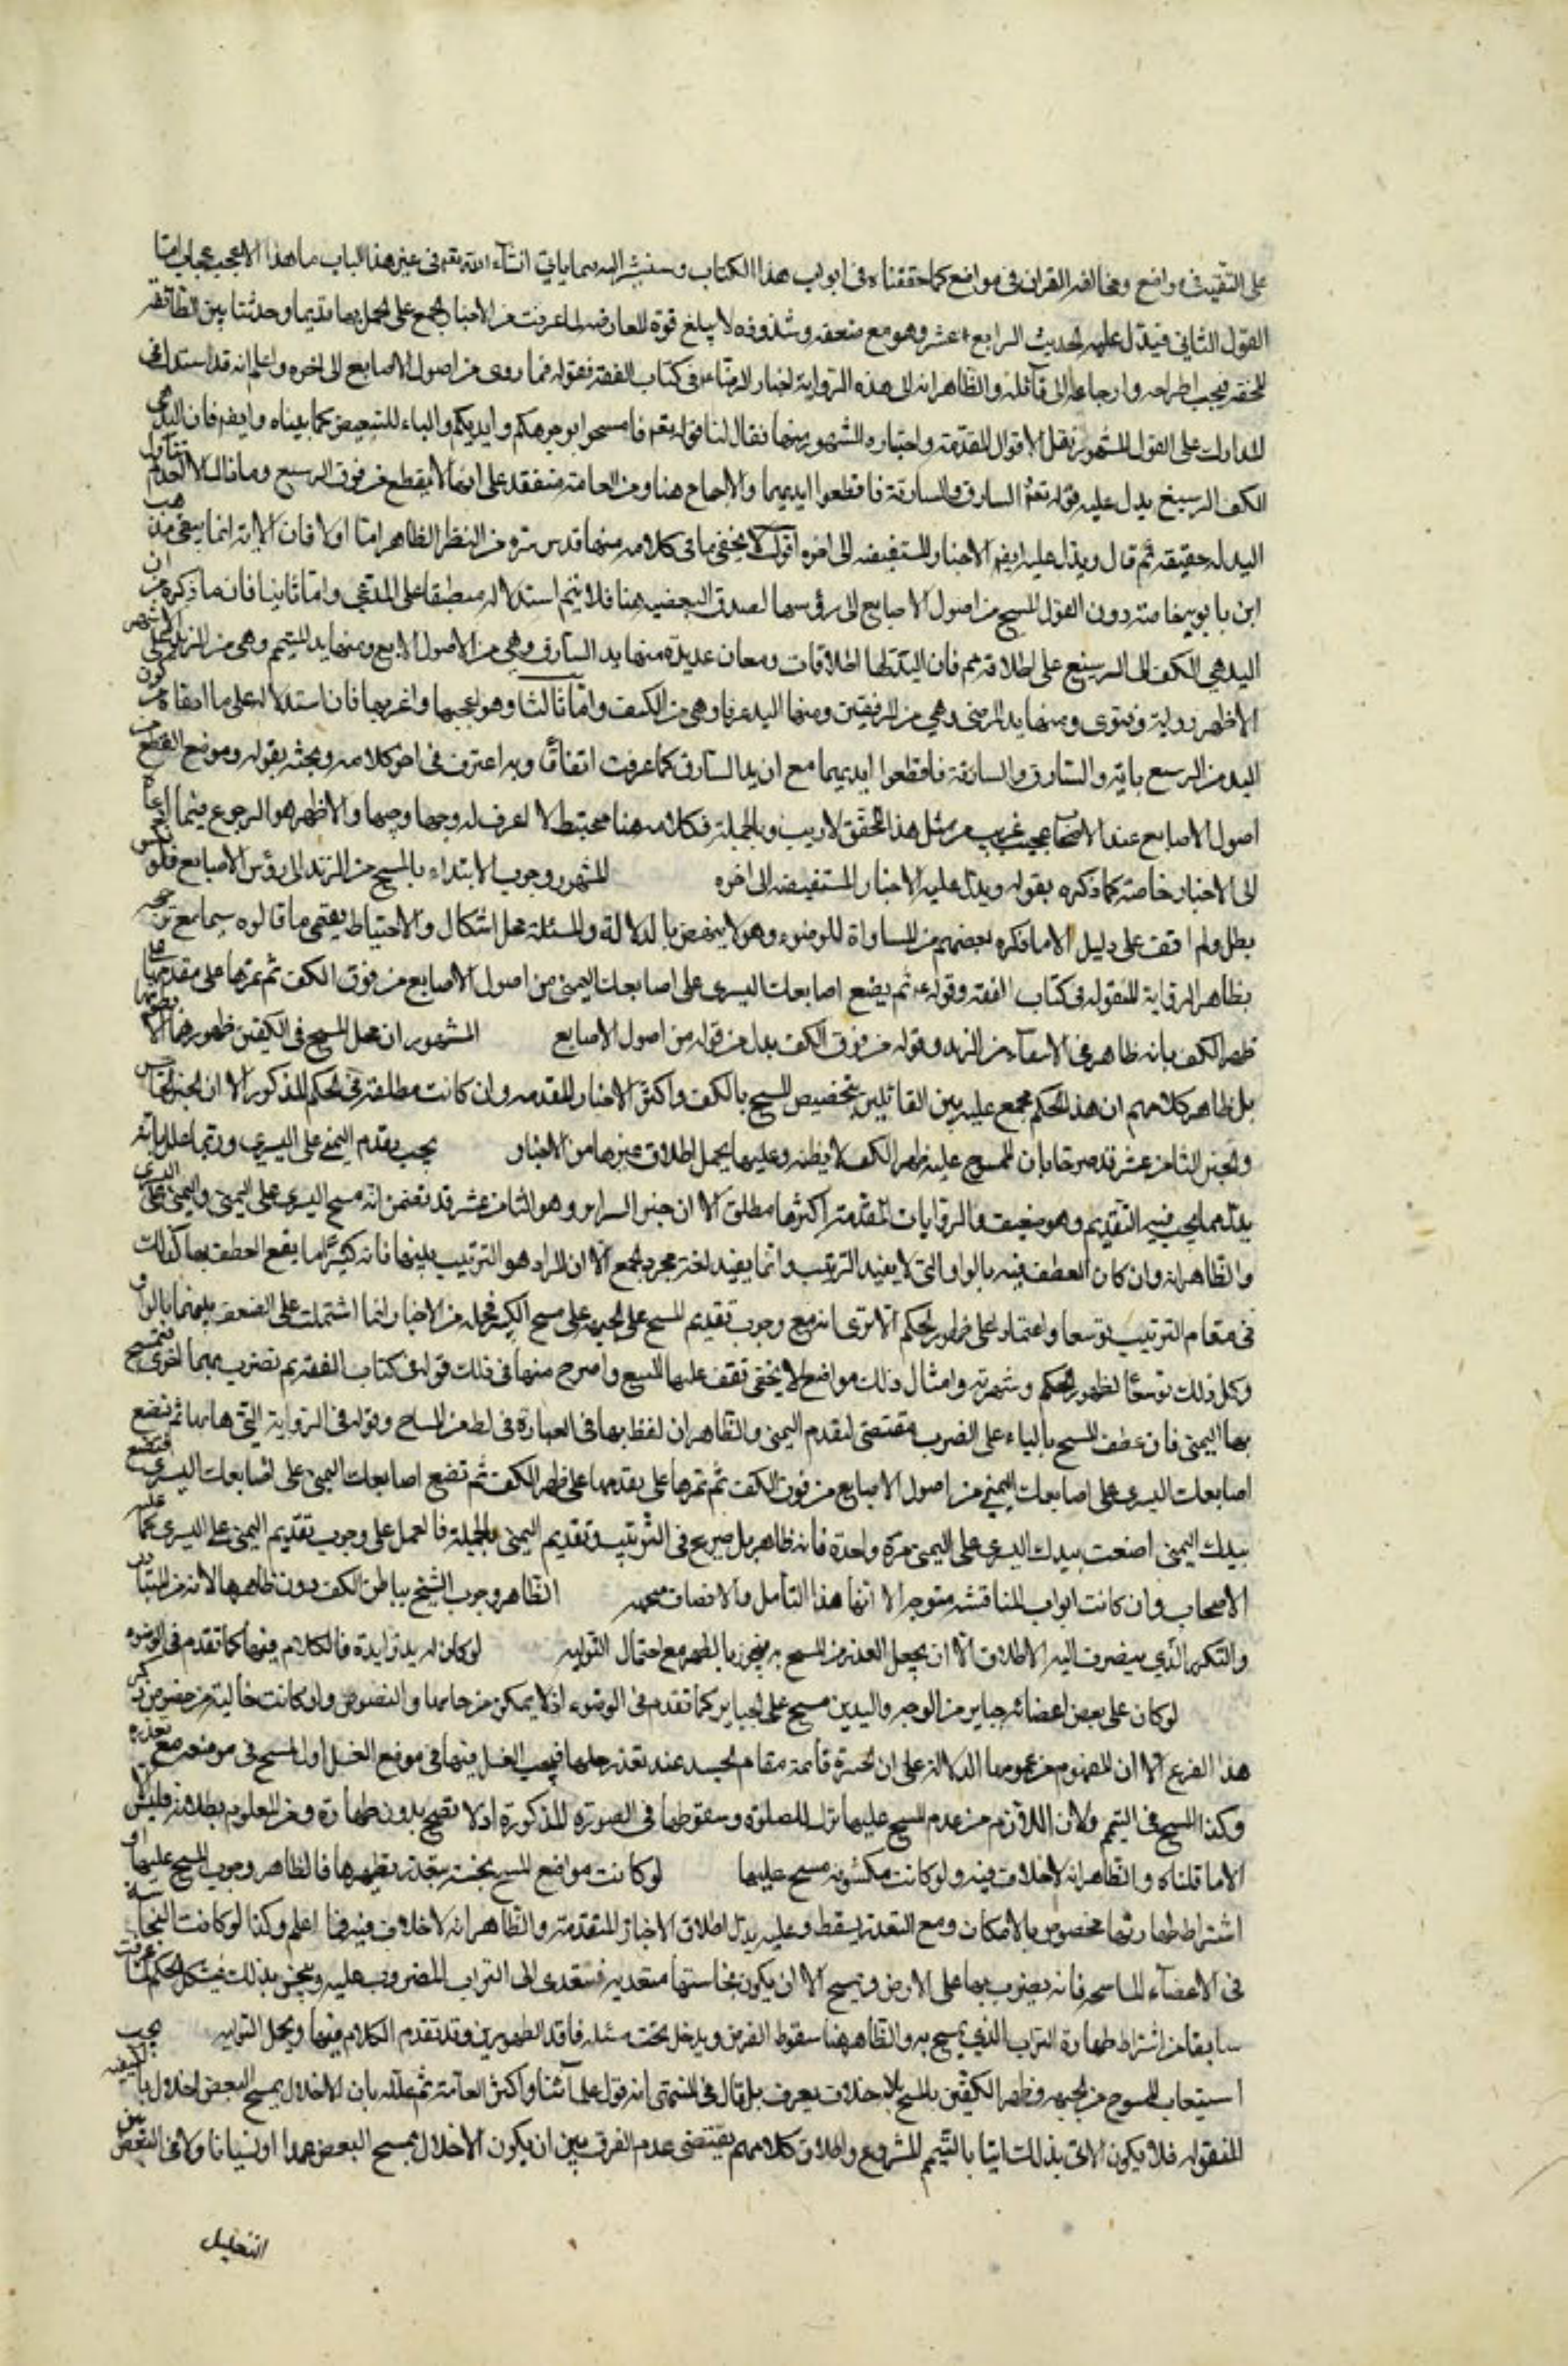 على التقية في مواضع ومخالفة القران في مواضع كما حققناه في ابواب هذا الكتاب وسنشير اليه سيما ياتي انشاء الله تعم في غير هذا الباب ما هذا الا عجب عجاب اما
القول الثاني فيدل عليه الحديث الرابع عشر وهو مع ضعفه وشذوذه لا يبلغ قوة المعارضه لما عرفت من الاخبار المجمع على العمل بها قديما وحديثا بين الطائفة
المحقه فيجب اطراحه وارجاعه الى قائله والظاهر انه الى هذه الرواية اشار الرضا ع في كتاب الفقه فقوله فما روى من اصول الاصابع الى اخره واعلم انه قد استدل في
المدارك على القول المشهور بنقل الاقوال المقدمة واختياره المشهور منها فقال لنا قوله تعم فامسحوا بوجوهكم وايديكم والباء للتبعيض كما بيناه وايضم فان اليد هي
الكف الى الرسغ يدل عليه قوله تعم السارق والسارقة فاقطعوا ايديهما والاجماع هنا ومن العامة منعقد على انها لا يقطع من فوق الرسغ وما ذاك الا لعدم تناول
اليد له حقيقه ثم قال ويدل عليه ايضم الاخبار المستفيضه الى اخره اقول لا يخفى ما في كلامه منها قدس سره من النظر الظاهر اما اولا فان الاية انما ينفي مذهب
ابن بابويه خاصة دون القول المسح من اصول الاصابع الى رؤسها لصدق البعضيه هنا فلا يتم استدلاله منطبقا على المدعى واما ثانيا فان ما ذكره من ان
اليد هي الكف الى الرسغ على اطلاقه مم فان اليد لها اطلاقات ومعان عديدة منها يد السارق وهي من الاصول الاربع ومنها يد المتيمم وهي من الزند على
الاظهر رواية وفتوى ومنها يد المرضى وهي من المرفقين ومنها اليد عرفا وهي من الكتف واما ثالثا وهو اعجبها واغربها فان استدلاله على ما ادعاه من كون
اليد من الرسغ باية والسارق والسارقة فاقطعوا ايديهما مع ان يد السارق كما عرفت اتفاقا وبه اعترف في اخر كلامه وبحثه بقوله وموضع القطع من
اصول الاصابع عند الاصحاب عجيب غريب من مثل هذا المحقق لاريب وبالجملة فكلامه هنا مختبط لا اعرف له وجها وجيها والاظهر هو الرجوع فيما ادعاه
الى الاخبار خاصة كما ذكره بقوله ويدل عليه الاخبار المستفيضه الى اخره المشهور وجوب الابتداء بالمسح من الزند الى رؤس الاصابع فلو نكس
بطل ولم اقف على دليل الا ما ذكره بعضهم من المساواة للوضوء وهو لا ينهض بالدلالة والمسئلة محل اشكال والاحتياط يقتضي ما قالوه سيما مع
بظاهر الرواية المنقوله في كتاب الفقه وقوله ع ثم يضع اصابعك اليسرى على اصابعك اليمنى من اصول الاصابع من فوق الكف ثم تمرها على مقدمها على
ظهر الكف بانه ظاهر في الابتداء من الزند وقوله من فوق الكف بدل من قوله من اصول الاصابع المشهور ان محل المسح في الكفين ظهورهما لا
بل ظاهر كلامهم ان هذا الحكم مجمع عليه بين القائلين بتخصيص المسح بالكف واكثر الاخبار المقدمه وان كانت مطلقة في الحكم المذكور الا ان الخبر الخامس
والخبر الثامن عشر قد صرحا بان الممسوح عليه ظهر الكف لا بطنه وعليهما يحمل اطلاق غيرهما من الاخبار يجب تقديم اليمنى على اليسرى وربما علل بانه
بدل عما يجب فيه التقديم وهو ضعيف والروايات المقدمة اكثرها مطلق الا ان خبر السرائر وهو الثامن عشر قد تضمن انه مسح اليسرى على اليمنى واليمنى على اليسرى
والظاهر انه وان كان العطف فيه بالواو التي لا يفيد الترتيب وانما يفيد لغة مجرد الجمع الا ان المراد هو الترتيب بينهما فانه كثيرا ما يقع العطف بها كذلك
في مقام الترتيب توسعا واعتمادا على ظهور الحكم الا ترى انه مع وجوب تقديم المسح على الجبهه على مسح اليد فجمله من الاخبار انما اشتملت على العطف بينهما بالواو
وكل ذلك توسعا لظهور الحكم وشهرته وامثال ذلك مواضع لا يخفى تقف عليها المتتبع واصرح منها في ذلك قوله في كتاب الفقه ثم تضرب بهما اخرى فتمسح
بها اليمنى فان عطف المسح بالفاء على الضرب مقتضى لتقدم اليمنى والظاهر ان لفظ بها في العبارة في غلط من النساخ وقوله في الرواية التي ثم تضع
اصابعك اليسرى على اصابعك اليمنى من اصول الاصابع من فوق الكف ثم تمرها على مقدمها على ظهر الكف ثم تضع اصابعك اليمنى على اصابعك اليسرى فتصنع
بيدك اليمنى ما صنعت بيدك اليسرى على اليمنى مرة واحدة فانه ظاهر بل صريح في الترتيب وتقديم اليمنى بالجملة فالعمل على وجوب تقديم اليمنى على اليسرى كما عليه
الاصحاب وان كانت ابواب المناقشه متوجه الا انها هذا التأمل والانصاف الظاهر وجوب المسح بباطن الكف دون ظاهرها لانه من المتبادر
والتكرر الذي ينصرف اليه الاطلاق الا ان يحصل العذر من المسح به فيجوز بالظهر مع احتمال التولية لو كان له يد زايدة فالكلام فيها كما تقدم في الوضوء
لو كان على بعض اعضائه جباير من الوجه واليدين مسح على الجباير كما تقدم في الوضوء اذ لا يمكن من حلها والنصوص وان كانت خالية من خصوص ذكر
هذا الفرع الا ان المفهوم من عمومها الدلالة على ان الجبيرة قائمة مقام الجسد عند تعذر حلها فيجب الغسل فيها في موضع الغسل او المسح في موضعه مع تعذره
وكذا المسح في التيمم ولان اللازم من عدم المسح عليها ترك للصلوة وسقوطها في الصورة المذكورة اذ لا تصح بدون طهارة ومن المعلوم بطلانه فليس
الا ما قلناه والظاهر انه لا خلاف فيه ولو كانت مكشوفه مسح عليها لو كانت مواضع المسح نجسة بتعذر تطهيرها فالظاهر وجوب المسح عليها و
اشتراط طهارتها مخصوص بالامكان ومع التعذر يسقط وعليه يدل اطلاق الاخبار المتقدمة والظاهر انه لا خلاف فيه فيما اعلم وكذا لو كانت النجاسة
في الاعضاء الماسحه فانه يضرب بها على الارض ويمسح الا ان يكون نجاستها متعديه فتتعدى الى التراب المضروب عليه وينجس بذلك فيشكل الحكم لما عرفت
سابقا من اشتراط طهارة التراب الذي يمسح به والظاهر هنا سقوط الفرض ويدخل تحت مسئله فاقد الطهورين وقد تقدم الكلام فيها ومحل التوليه يجب
استيعاب الممسوح من الجبهه وظهر الكفين بالمسح بلا خلاف يعرف بل قال في المنتهى انه قول علمائنا واكثر العامة ثم علله بان الاخلال بمسح البعض اخلال بالكيفيه
المنقوله فلا يكون الاتي بذلك اتيا بالتيمم المشروع واطلاق كلامهم يقتضي عدم الفرق بين ان يكون الاخلال بمسح البعض عمدا او نسيانا ولا في البعض بين
التعليل